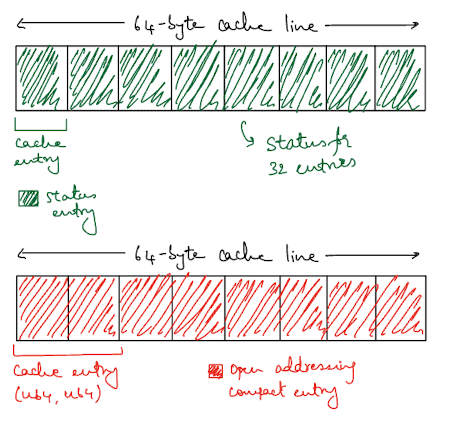 64-byte cache line
cache
entry
Status for
32 entries
status
entry
64-byte cache line
cache entry
(u64, u64)
open addressing
compact entry